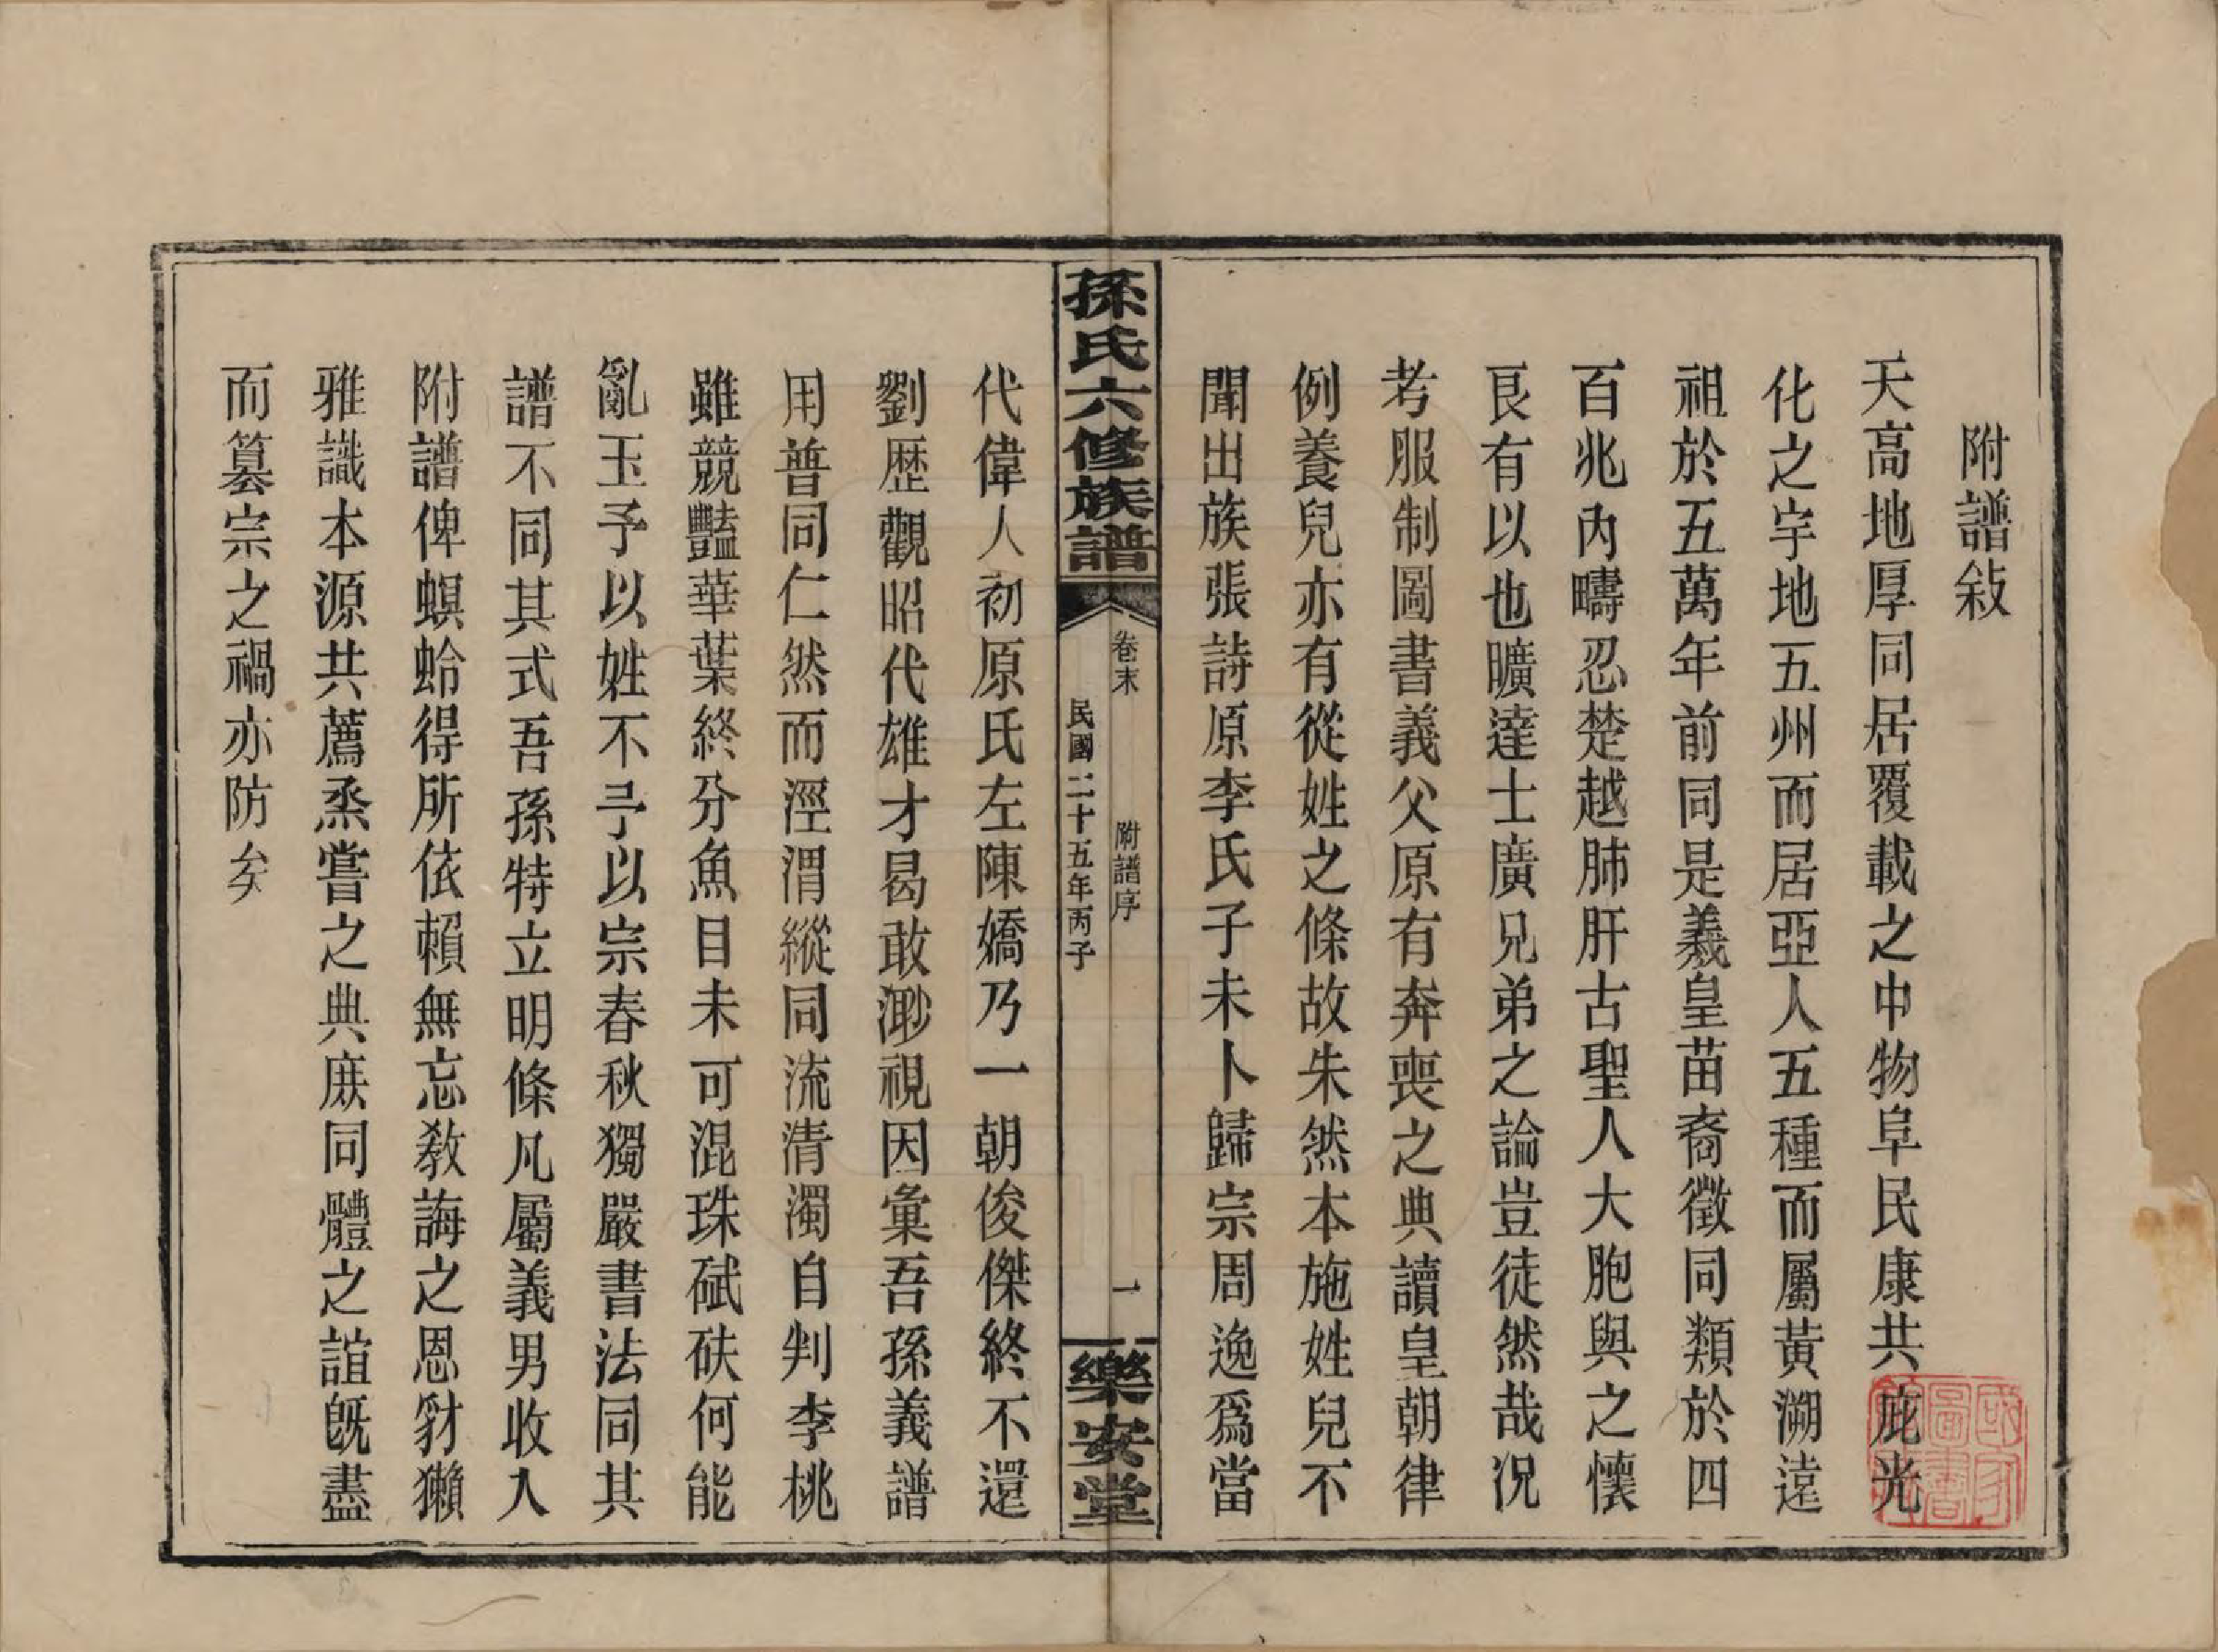 附譜敍
天高地厚同居覆載之中物阜民康共庇光
化之宇地五州而居亞人五種而屬黃溯遠
祖於五萬年前同是羲皇苗裔徵同類於四
百兆內疇忍楚越肺肝古聖人大胞與之懷
良有以也曠達士廣兄弟之論豈徒然哉況
考服制圖書義父原有奔喪之典讀皇朝律
例養兒亦有從姓之條故朱然本施姓兒不
聞出族張詩原李氏子未卜歸宗周逸爲當
孫氏六修族譜
卷末
附譜序
一
民國二十五年丙子
樂安堂
代偉人初原氏左陳嬌乃一朝俊傑終不還
劉歷觀昭代雄才曷敢渺視因彙吾孫義譜
用普同仁然而涇渭縱同流清濁自判李桃
雖競豔華葉終分魚目未可混珠碔砆何能
亂玉予以姓不予以宗春秋獨嚴書法同其
譜不同其式吾孫特立明條凡屬義男收入
附譜俾螟蛉得所依賴無忘教誨之恩豺獺
雅識本源共薦烝嘗之典庶同體之誼旣盡
而篡宗之禍亦防矣
國家圖書館藏